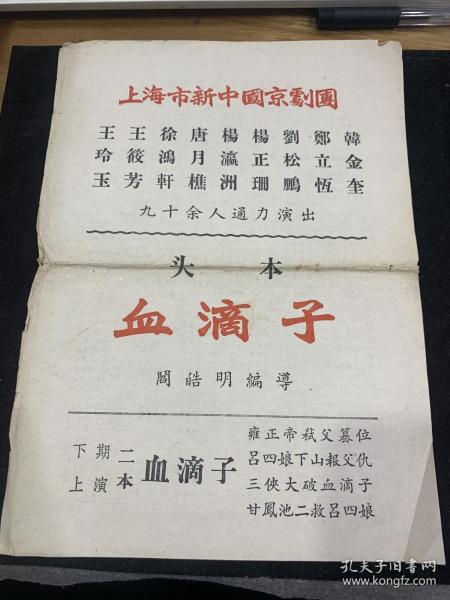 上海市新中國京劇團
王玲玉
王筱芳
徐鴻軒
唐月樵
楊瀛洲
楊正珊
劉松鵬
鄭立恆
韓金奎
九十余人通力演出
头本
血滴子
閻皓明編導
下期
上演
二本
血滴子
雍正帝弒父篡位
呂四娘下山報父仇
三俠大破血滴子
甘鳳池二救呂四娘
孔夫子旧书网
www.kongfz.com